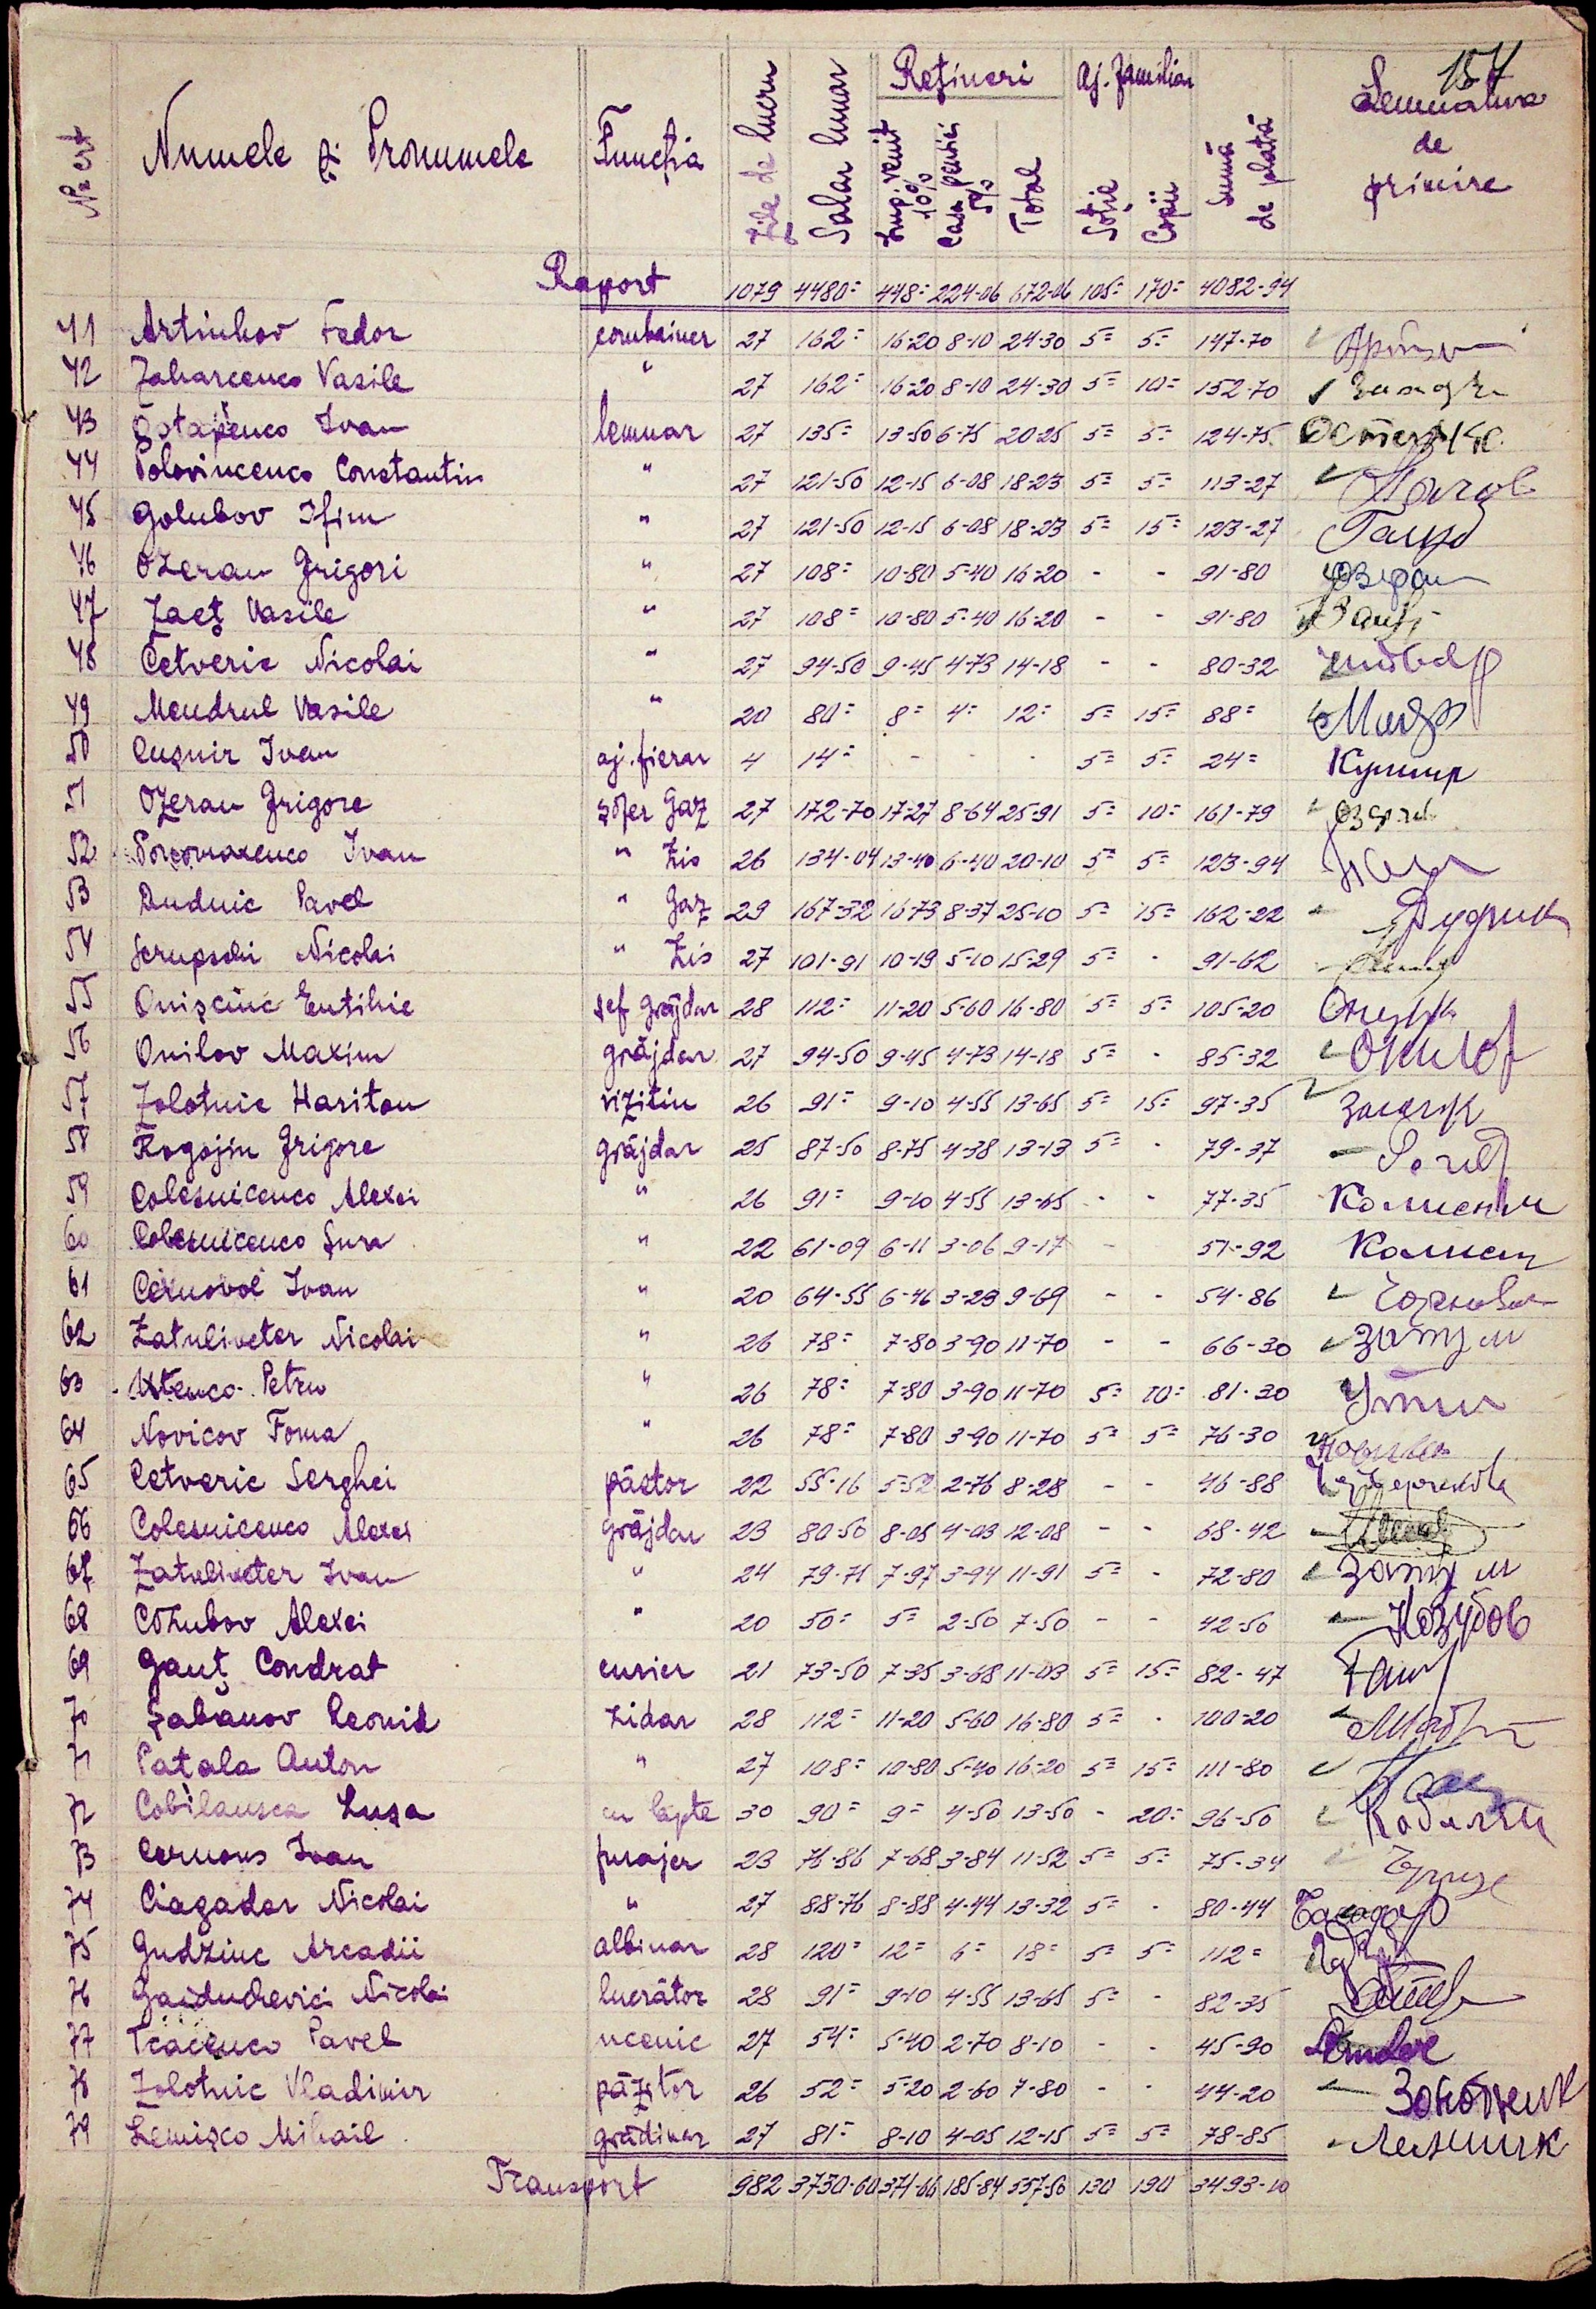 157
Nr. crt Numele și Pronumele Funcția Zile de lucru Salar lunar Rețineri Imp. venit 10% Casa pensii 5% Total Aj. familiar Soție Copii Suma de plată Semnatura de primire
Raport 1079 4480= 448= 224-06 672-06 105= 170= 4082-94
41 Artiuhov Fedor combainer 27 162= 16-20 8-10 24-30 5= 5= 147-70
42 Zaharcenco Vasile " 27 162= 16-20 8-10 24-30 5= 10= 152-70
43 Ostapenco Ivan lemnar 27 135= 13-50 6-75 20-25 5= 5= 124-75
44 Polovincenco Constantin " 27 121-50 12-15 6-08 18-23 5= 5= 113-27
45 Golubov Ifim " 27 121-50 12-15 6-08 18-23 5= 15= 123-27
46 Ozeran Grigori " 27 108= 10-80 5-40 16-20 - - 91-80
47 Zaeț Vasile " 27 108= 10-80 5-40 16-20 - - 91-80
48 Cetveric Nicolai " 27 94-50 9-45 4-73 14-18 - - 80-32
49 Mendrul Vasile " 20 80= 8= 4= 12= 5= 15= 88=
50 Cușnir Ivan aj. fierar 4 14= - - - 5= 5= 24= Кушнир
51 Ozeran Grigore șofer Gaz 27 172-70 17-27 8-64 25-91 5= 10= 161-79
52 Ivan " Zis 26 134-04 13-40 6-40 20-10 5= 5= 123-94
53 Dudnic Pavel " Gaz 29 167-32 16-73 8-37 25-10 5= 15= 162-22 Дудник
54 Scrupschi Nicolai " Zis 27 101-91 10-19 5-10 15-29 5= - 91-62
55 Onișciuc Eutihie șef grăjdar 28 112= 11-20 5-60 16-80 5= 5= 105-20
56 Onilov Maxim grăjdar 27 94-50 9-45 4-73 14-18 5= - 85-32
57 Zolotnic Hariton vizitiu 26 91= 9-10 4-55 13-65 5= 15= 97-35
58 Rogojin Grigore grăjdar 25 87-50 8-75 4-38 13-13 5= - 79-37
59 Colesnicenco Alexei " 26 91= 9-10 4-55 13-65 - - 77-35
60 Colesnicenco Șura " 22 61-09 6-11 3-06 9-17 - 51-92
61 Cernovol Ivan " 20 64-55 6-46 3-23 9-69 - - 54-86
62 Zatuliveter Nicolai " 26 78= 7-80 3-90 11-70 - - 66-30
63 Ustenco Petru " 26 78= 7-80 3-90 11-70 5= 10= 81-30
64 Novicov Foma " 26 78= 7-80 3-90 11-70 5= 5= 76-30
65 Cetveric Serghei păstor 22 55-16 5-52 2-76 8-28 - - 46-88
66 Colesnicenco Alexei grăjdar 23 80-50 8-05 4-03 12-08 - - 68-42
67 Zatuliveter Ivan " 24 79-71 7-97 3-94 11-91 5= - 72-80
68 Cozubov Alexei " 20 50= 5= 2-50 7-50 - - 42-50 Козубов
69 Gauț Condrat curier 21 73-50 7-35 3-68 11-03 5= 15= 82-47
70 Șabanov Leonid zidar 28 112= 11-20 5-60 16-80 5= - 100-20
71 Patala Anton " 27 108= 10-80 5-40 16-20 5= 15= 111-80
72 Cobileanscа Lușa cu lapte 30 90= 9= 4-50 13-50 - 20= 96-50
73 Cernous Ivan furajer 23 76-86 7-68 3-84 11-52 5= 5= 75-34
74 Ciagadar Nicolai " 27 88-76 8-88 4-44 13-32 5= - 80-44
75 Gudziuc Arcadii albinar 28 120= 12= 6= 18= 5= 5= 112=
76 Gaiduchevici Nicolai lucrător 28 91= 9-10 4-55 13-65 5= - 82-35
77 Tcacenco Pavel ucenic 27 54= 5-40 2-70 8-10 - - 45-90
78 Zolotnic Vladimir păzitor 26 52= 5-20 2-60 7-80 - - 44-20 Золотник
79 Lemișco Mihail grădinar 27 81= 8-10 4-05 12-15 5= 5= 78-85
Transport 982 3730-60 371-66 185-84 557-50 130 190 3493-10